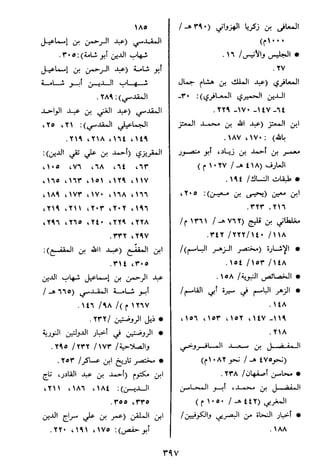 ١٨٥
المعافى بن زكريا الهزواني (٣٩٠ هـ /
١٠٠٠م)
* الجليس والأنيس / ١٦.
٢٧.
المعافري (عبد الملك بن هشام جمال
الدين الحميري المعافري): ٣٠-
٦٤- ١٤٧- ١٧٠- ٢٢٩.
ابن المعتز (عبد الله بن محمد المعتز
بالله): ١٧٠، ١٨٧.
معمر بن أحمد بن زياد، أبو منصور
العارف (٤١٨ هـ / ١٠٢٧ م)
* طبقات النساك / ١٩٤.
ابن معين (يحيى بن معين): ٢٠٥،
٢١٦، ٣٢٣.
مغلطاي بن قليج (٧٦٢ هـ / ١٣٦١ م)
١١٨/ ١٤٠/ ٢٢٢/ ٣٤٢.
* الإشارة (مختصر الزهر الباسم)/
١٤٨/ ١٥٣/ ١٥٤.
* الخصائص النبوية/ ١٥٨.
* الزهر الباسم في سيرة أبي القاسم/
١٤٨.
١١٩- ١٤٧، ١٥٢، ١٥٣، ١٥٦،
٢١٨.
المفضل بن سعد المافروخي
(نحو ٤٧٥هـ / نحو ١٠٨٢م)
* محاسن أصفهان/ ٢٣٨.
المفضل بن محمد، أبو المحاسن
المغربي (٤٤٢ هـ / ١٠٥٠ م)
* أخبار النحاة من البصريين والكوفيين/
١٨٨.
المقدسي (عبد الرحمن بن إسماعيل
شهاب الدين أبو شامة): ٣٠٥.
أبو شامة (عبد الرحمن بن إسماعيل
شهاب الدين أبو شامة
المقدسي): ٢٨٩.
المقدسي (عبد الغني بن عبد الواحد
الجماعيلي المقدسي): ٢١، ٢٥،
١٤٩، ١٦٤، ٢١٨، ٢١٩.
المقريزي (أحمد بن علي تقي الدين):
٦٣، ٦٤، ٦٨، ٧٦، ١٠٥،
١١٧، ١٢٩، ١٥١، ١٦٣، ١٦٥،
١٦٦، ١٦٨، ١٧٠، ١٧٣، ١٨٩،
١٩٦، ٢٠٢، ٢٠٣، ٢١١، ٢١٩،
٢٢٨، ٢٢٩، ٢٤٠، ٢٦٥، ٢٩٦،
٢٩٧، ٣٣٢.
ابن المقفّع (عبد الله بن المقفع):
٣٠٥، ٣١٤.
عبد الرحمن بن إسماعيل شهاب الدين
أبو شامة المقدسي (٦٦٥ هـ /
١٢٦٧ م)/ ٩٨/ ١٤٦.
* ذيل الروضتين / ٢٣٢.
* الروضتين في أخبار الدولتين النورية
والصلاحية/ ١٧٣/ ٢٣٢/ ٢٩٥.
* مختصر تاريخ ابن عساكر/ ٢٥٣.
ابن مكتوم (أحمد بن عبد القادر، تاج
الدين): ١٨٤، ١٨٦، ٢١١،
٣٣٥، ٣٥٥.
ابن الملقن (عمر بن علي سراج الدين
أبو حفص): ١٧٥، ١٩١، ٢٢٠.
٣٩٧